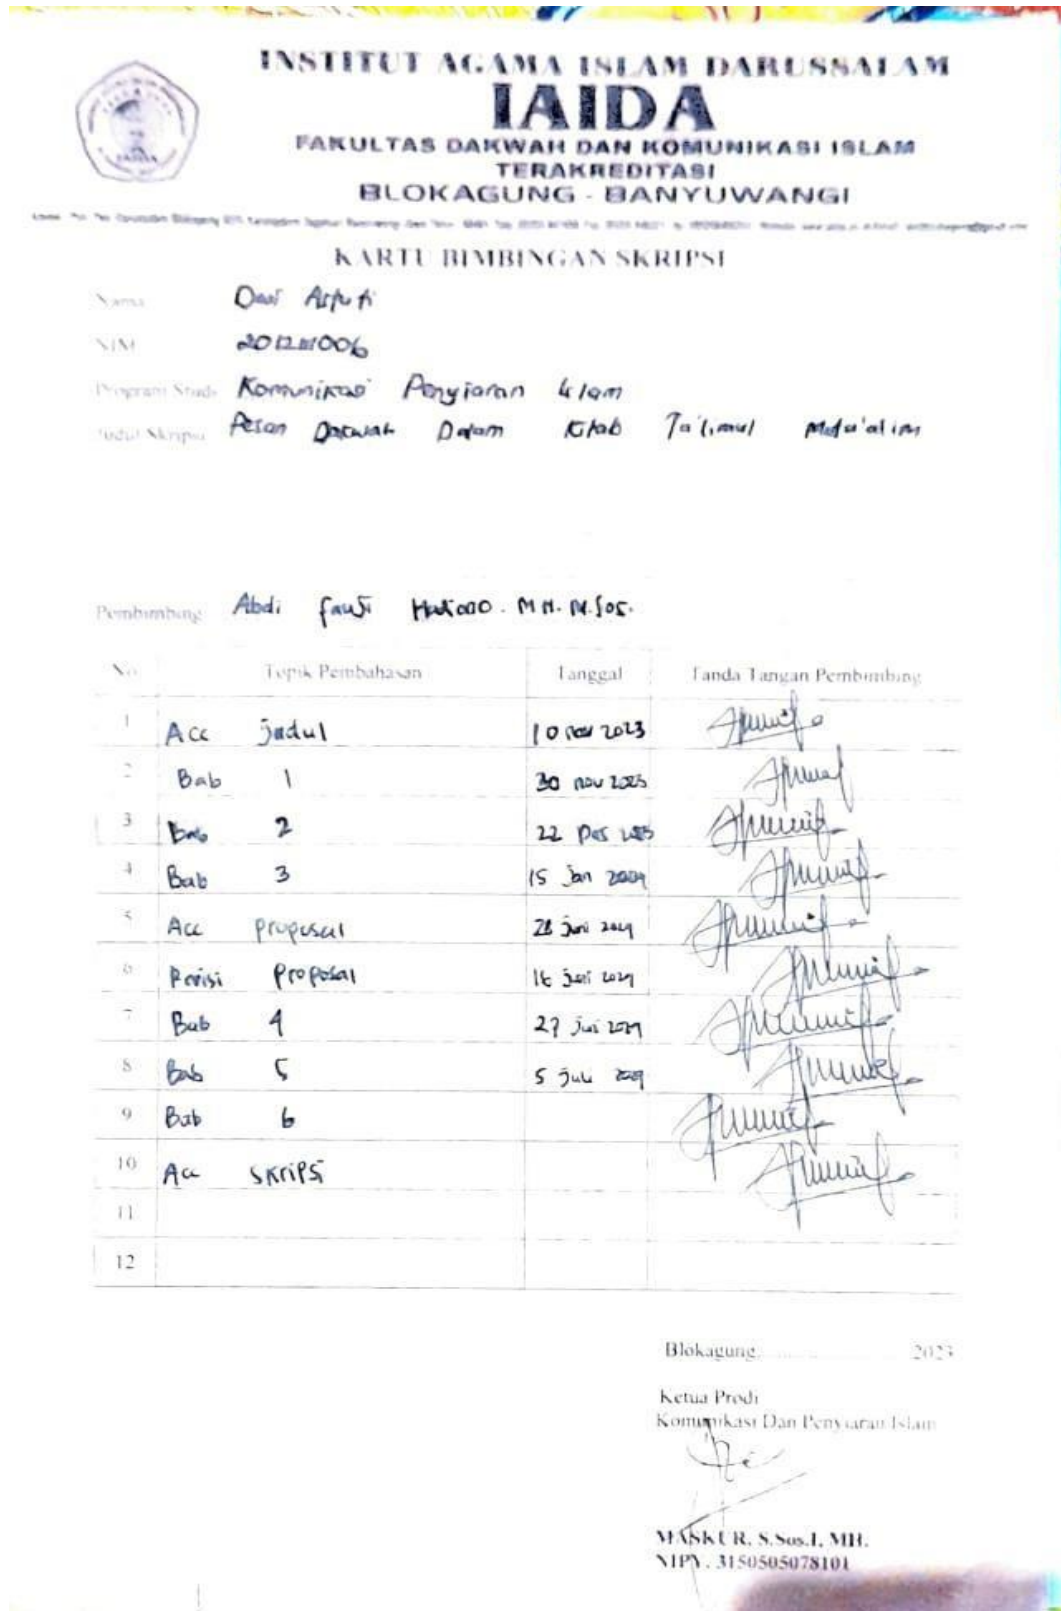 INSTITUT AGAMA ISLAM DARUSSALAM
IAIDA
FAKULTAS DAKWAH DAN KOMUNIKASI ISLAM
TERAKREDITASI
BLOKAGUNG - BANYUWANGI
KARTU BIMBINGAN SKRIPSI
Nama Dewi Astuti
NIM
Program Studi Komunikasi Penyiaran Islam
Judul Skripsi Pesan Dakwah Dalam Kitab Ta'limul
Pembimbing Abdi Fauji MH. M.Sos.
No Topik Pembahasan Tanggal Tanda Tangan Pembimbing
1 Acc judul 10 nov 2023
2 Bab 1 30 nov 2023
3 Bab 2 22 Des 2023
4 Bab 3 15 Jan 2024
5 Acc proposal 28 Juni 2024
6 Revisi Proposal 16 2024
7 Bab 4 27 2024
8 Bab 5 5 Juli 2024
9 Bab 6
10 Acc skripsi
11
12
Blokagung, 2023
Ketua Prodi
Komunikasi Dan Penyiaran Islam
MASKUR, S.Sos.I, MH.
NIPY. 3150505078101